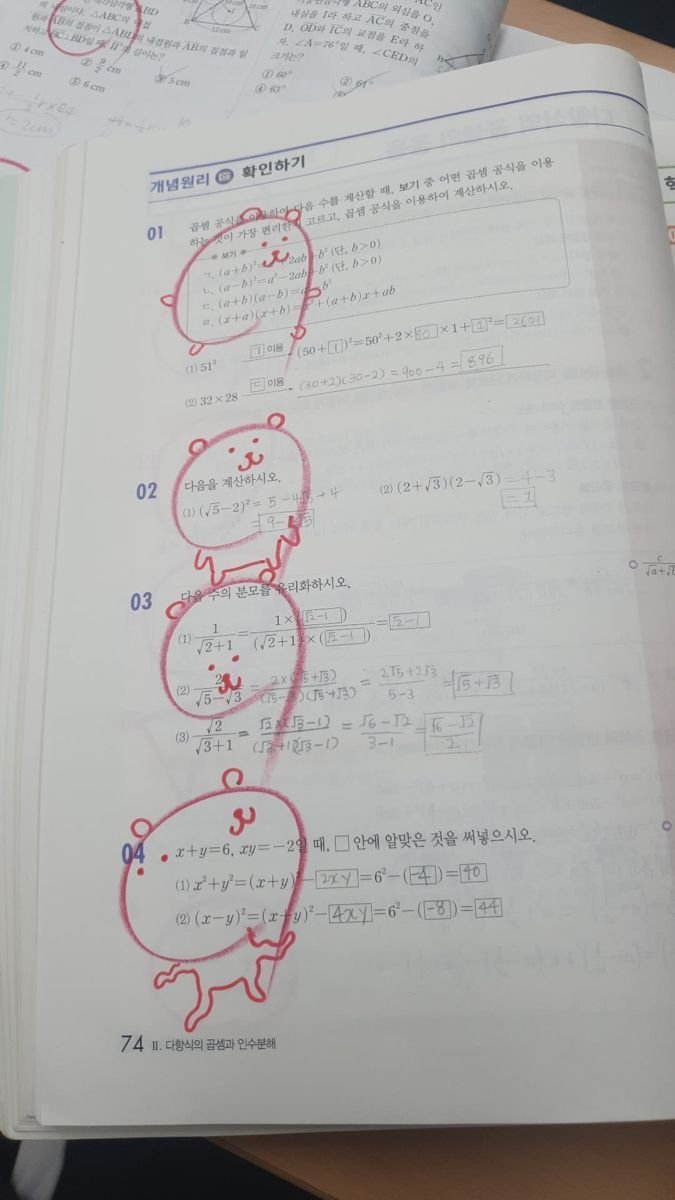 내심을 I라 하고 AC의 중점을
D, OD와 IC의 교점을 E라 하
자. ∠A=76°일 때, ∠CED의
크기는?
① 4cm
⑤ 6cm
① 60°
④ 63°
12cm
개념원리 확인하기
01 곱셈 공식을 이용하여 다음 수를 계산할 때, 보기 중 어떤 곱셈 공식을 이용
하는 것이 가장 편리한지 고르고, 곱셈 공식을 이용하여 계산하시오.
보기
ㄱ. (a+b)²=a²+2ab+b² (단, b>0)
ㄴ. (a-b)²=a²-2ab+b² (단, b>0)
ㄷ. (a+b)(a-b)=a²-b²
ㄹ. (x+a)(x+b)=x²+(a+b)x+ab
(1) 51² ㄱ 이용 (50+1)²=50²+2×50×1+1²=2601
(2) 32×28 ㄷ 이용 (30+2)(30-2)=900-4=896
02 다음을 계산하시오.
(1) (√5-2)²=5-4√5+4
=9-4√5
(2) (2+√3)(2-√3)=4-3
=1
03 다음 수의 분모를 유리화하시오.
(1) 1/(√2+1)=1×(√2-1)/(√2+1)×(√2-1)=√2-1
(2) 2/(√5-√3)=2×(√5+√3)/(√5-√3)(√5+√3)=(2√5+2√3)/(5-3)=√5+√3
(3) √2/(√3+1)=√2×(√3-1)/(√3+1)(√3-1)=(√6-√2)/(3-1)=(√6-√2)/2
04 x+y=6, xy=-2일 때, □ 안에 알맞은 것을 써넣으시오.
(1) x²+y²=(x+y)²-2xy=6²-(-4)=40
(2) (x-y)²=(x+y)²-4xy=6²-(-8)=44
74 Ⅱ. 다항식의 곱셈과 인수분해